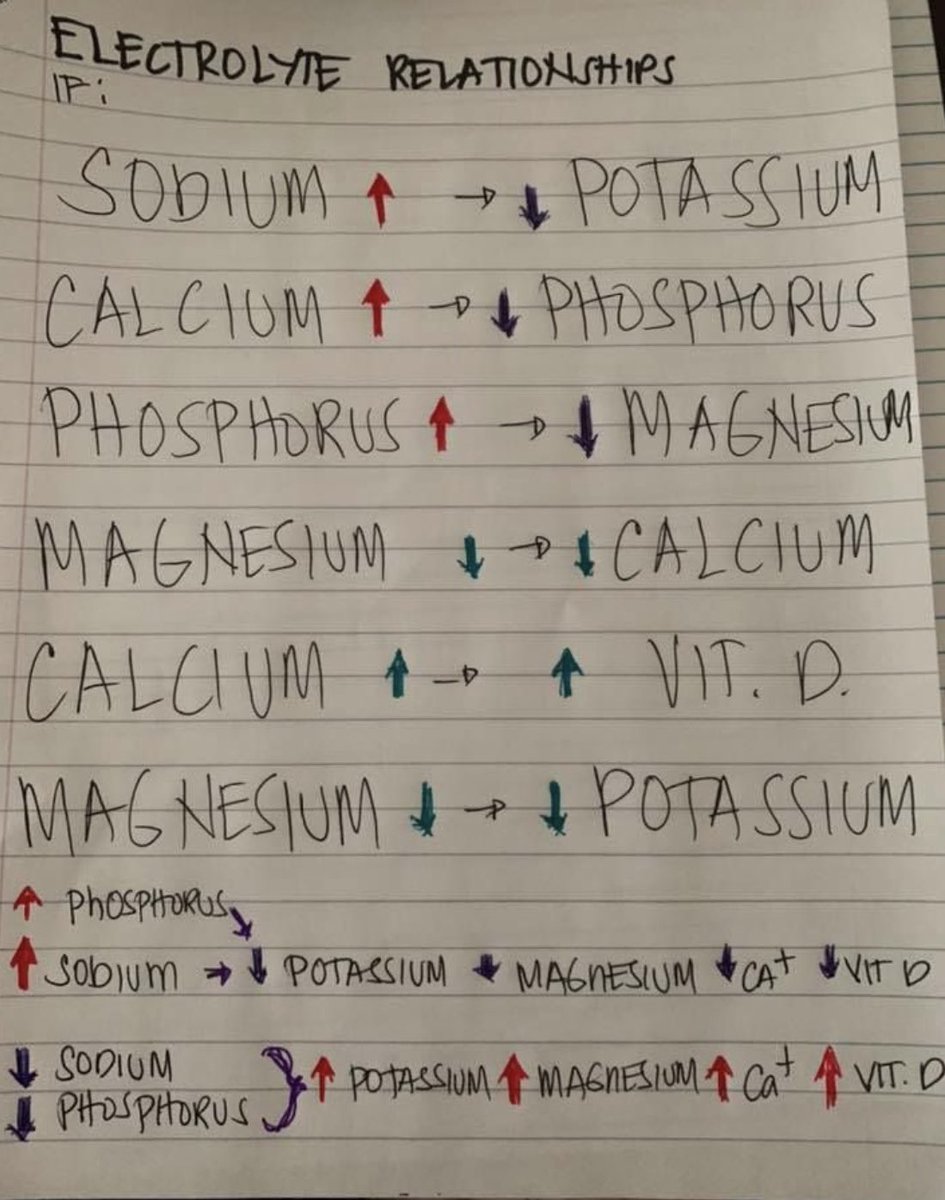 ELECTROLYTE RELATIONSHIPS
IF:
SODIUM ↑ → ↓ POTASSIUM
CALCIUM ↑ → ↓ PHOSPHORUS
PHOSPHORUS ↑ → ↓ MAGNESIUM
MAGNESIUM ↓ → ↓ CALCIUM
CALCIUM ↑ → ↑ VIT. D.
MAGNESIUM ↓ → ↓ POTASSIUM
↑ PhOSPHORUS ↘
↑ SODIUM → ↓ POTASSIUM ↓ MAGNESIUM ↓ CA+ ↓ VIT D
↓ SODIUM
↓ PHOSPHORUS } ↑ POTASSIUM ↑ MAGNESIUM ↑ Ca+ ↑ VIT. D